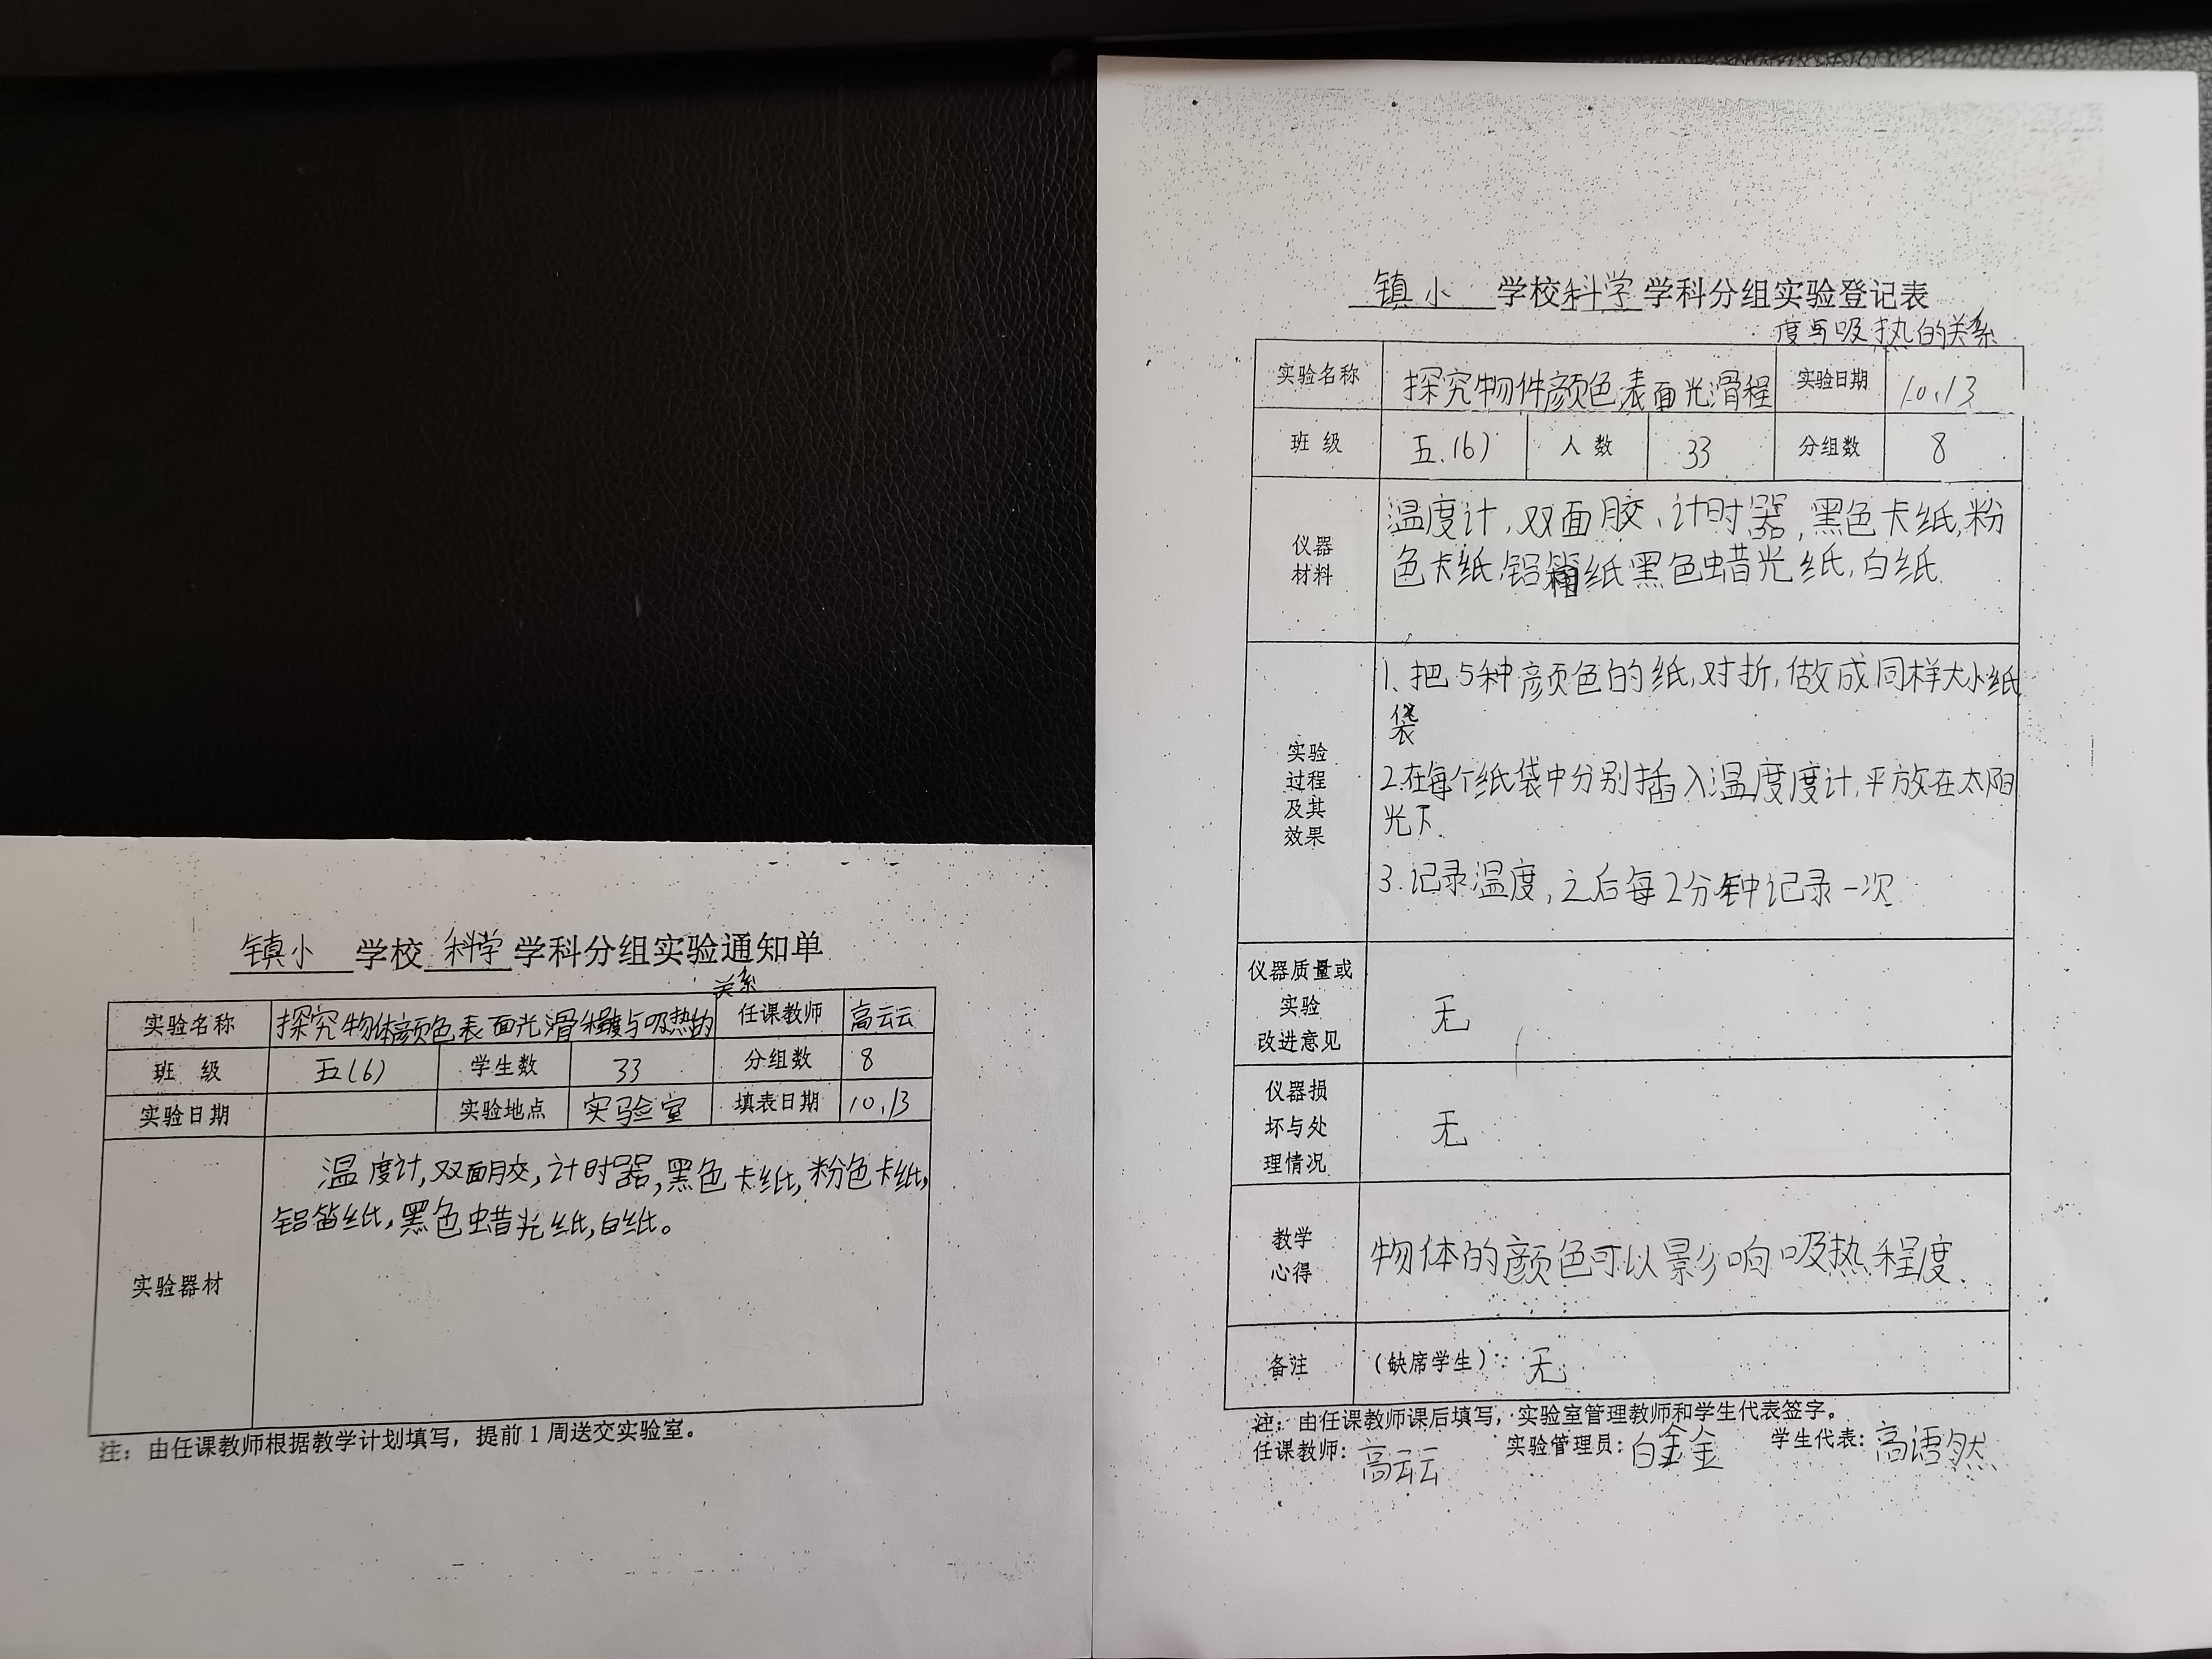 镇小 学校 科学 学科分组实验通知单
关系
实验名称 探究物体颜色表面光滑程度与吸热的 任课教师 高云云
班 级 五(6) 学生数 33 分组数 8
实验日期 实验地点 实验室 填表日期 10.13
实验器材
温度计,双面胶,计时器,黑色卡纸,粉色卡纸,
铝箔纸,黑色蜡光纸,白纸。
注：由任课教师根据教学计划填写，提前1周送交实验室。
镇小 学校科学学科分组实验登记表
度与吸热的关系
实验名称 探究物件颜色表面光滑程 实验日期 10.13
班 级 五.(6) 人 数 33 分组数 8
仪器
材料
温度计,双面胶、计时器,黑色卡纸,粉
色卡纸,铝箔纸黑色蜡光纸,白纸.
实验
过程
及其
效果
1、把5种颜色的纸,对折,做成同样大小纸
袋
2.在每个纸袋中分别插入温度度计,平放在太阳
光下.
3.记录温度,之后每2分钟记录一次
仪器质量或
实验
改进意见
无
仪器损
坏与处
理情况
无
教学
心得
物体的颜色可以影响吸热程度.
备注 （缺席学生）：无
注：由任课教师课后填写，实验室管理教师和学生代表签字。
任课教师：高云云 实验管理员：白金金 学生代表：高语然